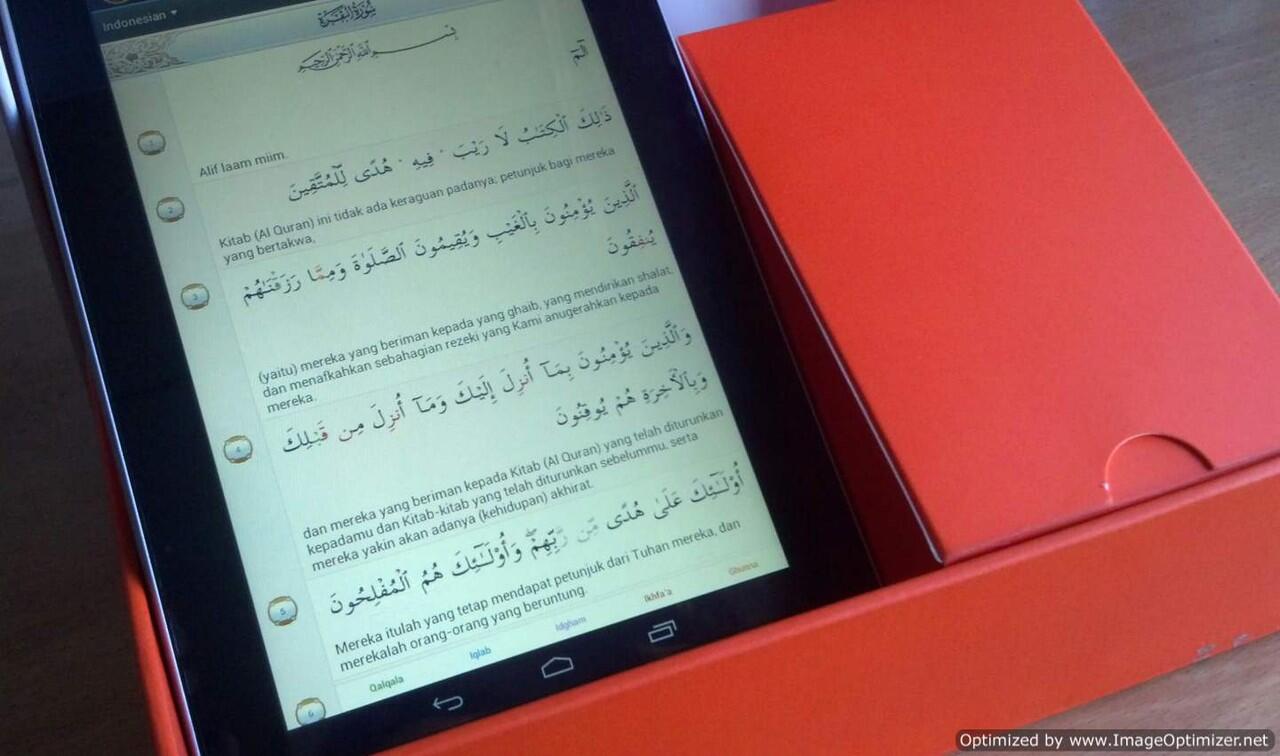 Indonesian
سُورَةُ البَقَرَةِ
بِسْمِ ٱللَّهِ ٱلرَّحْمَٰنِ ٱلرَّحِيمِ
الٓمٓ
1
Alif laam miim.
ذَٰلِكَ ٱلْكِتَٰبُ لَا رَيْبَ ۛ فِيهِ ۛ هُدًى لِّلْمُتَّقِينَ
2
Kitab (Al Quran) ini tidak ada keraguan padanya; petunjuk bagi mereka
yang bertakwa,
ٱلَّذِينَ يُؤْمِنُونَ بِٱلْغَيْبِ وَيُقِيمُونَ ٱلصَّلَوٰةَ وَمِمَّا رَزَقْنَٰهُمْ
يُنفِقُونَ
3
(yaitu) mereka yang beriman kepada yang ghaib, yang mendirikan shalat,
dan menafkahkan sebahagian rezeki yang Kami anugerahkan kepada
mereka.
وَٱلَّذِينَ يُؤْمِنُونَ بِمَآ أُنزِلَ إِلَيْكَ وَمَآ أُنزِلَ مِن قَبْلِكَ
وَبِٱلْءَاخِرَةِ هُمْ يُوقِنُونَ
4
dan mereka yang beriman kepada Kitab (Al Quran) yang telah diturunkan
kepadamu dan Kitab-kitab yang telah diturunkan sebelummu, serta
mereka yakin akan adanya (kehidupan) akhirat.
أُو۟لَٰٓئِكَ عَلَىٰ هُدًى مِّن رَّبِّهِمْ ۖ وَأُو۟لَٰٓئِكَ هُمُ ٱلْمُفْلِحُونَ
5
Mereka itulah yang tetap mendapat petunjuk dari Tuhan mereka, dan
merekalah orang-orang yang beruntung.
6
Qalqala Iqlab Idgham Ikhfa'a Ghunna
Optimized by www.ImageOptimizer.net